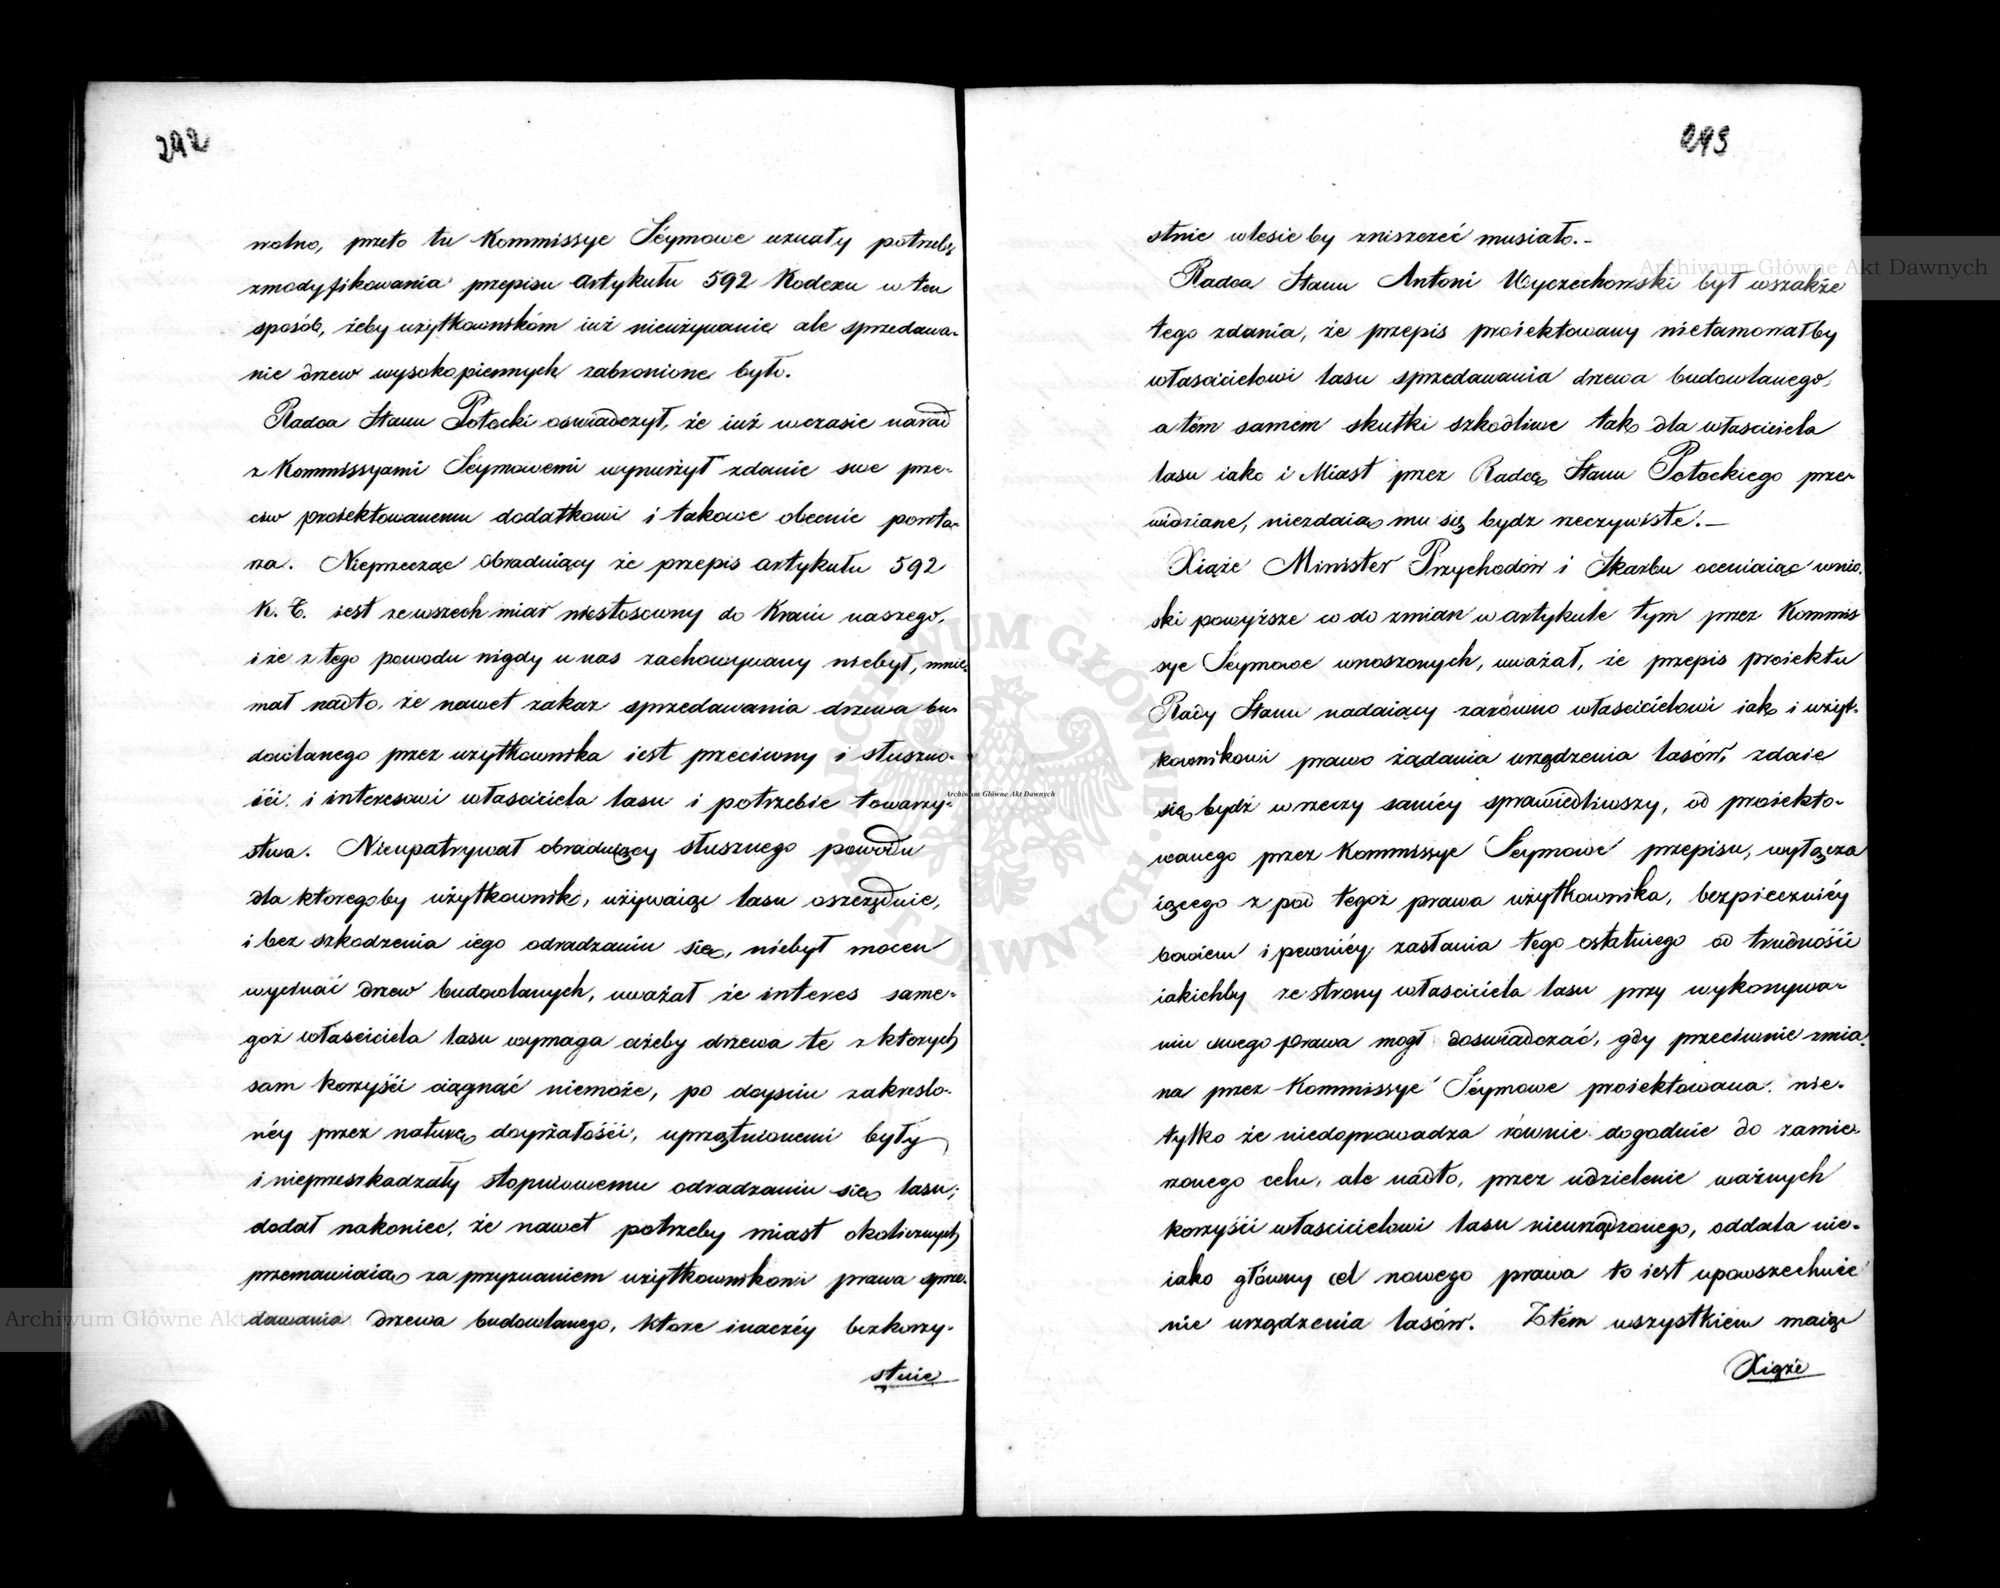 292
wolno, przeto tu Kommissye Séymowe uznały potrzebę
zmodyfikowania przepisu artykułu 592 Kodexu w ten
sposób, żeby użytkownikóm iuż nieużywanie ale sprzedawa-
nie drzew wysokopiennych zabronione było.
Radca Stanu Potocki oswiadczył, że iuż w czasie narad
z Kommissyami Séymowemi wynurżył zdanie swe prze-
ciw proiektowanemu dodatkowi i takowe obecnie powta-
rza. Nieprzecząc Obraduiący że przepis artykułu 592
K. C. iest ze wszech miar niestosowny do Kraiu naszego,
i że z tego powodu nigdy u nas zachowywany niebył, mnie-
mał nadto, że nawet zakaz sprzedawania drzewa bu-
dowlanego przez użytkownika iest przeciwny i słuszno-
ści i interesowi własciciela lasu i potrzebie towarzy-
stwa. Nieupatrywał obraduiący słusznego powodu
dla któregoby użytkownik, używaiąc lasu oszczędnie,
i bez szkodzenia iego odradzaniu się, niebył mocen
wycinać drzew budowlanych, uważał że interes same-
goż własciciela lasu wymaga ażeby drzewa te z ktorych
sam korzyści ciągnąć niemoże, po doysciu zakreslo-
néy przez naturę doyrzałości, uprzątnionemi były
i nieprzeszkadzały stopniowemu odradzaniu się lasu;
dodał nakoniec, że nawet potrzeby miast okolicznych
przemawiaią za przyznaniem użytkownikowi prawa sprze-
dawania drzewa budowlanego, ktore inaczéy bezkorzy-
stnie
293
stnie w lesie by zniszczeć musiało.-
Radca Stanu Antoni Wyczechowski był wszakże
tego zdania, że przepis proiektowany nietamowałby
własscicielowi lasu sprzedawania drzewa budowlanego,
a tém samém skutki szkodliwe tak dla własciciela
lasu iako i Miast przez Radcę Stanu Potockiego prze-
widziane, niezdaią mu się bydz rzeczywiste.-
Xiąże Minister Przychodów i Skarbu oceniaiąc wnio-
ski powyższe co do zmian w artykule tym przez Kommis
sye Séymowe wnoszonych, uważał, że przepis proiektu
Rady Stanu nadaiący zarówno własscicielowi iak i użyt-
kownikowi prawo żądania urządzenia lasów, zdaie
się bydź w rzeczy saméy sprawiedliwszy, od proiekto-
wanego przez Kommissye Séymowe przepisu, wyłącza
iącego z pod tegoż prawa użytkownika, bezpieczniéy
bowiem i pewniéy zasłania tego ostatniego od trudności
iakichby ze strony własciciela lasu przy wykonywa-
niu swego prawa mogł doswiadczać, gdy przeciwnie zmia-
na przez Kommissye Séymowe proiektowana, nie-
tylko że niedoprowadza równie dogodnie do zamie-
rzonego celu, ale nadto, przez udzielenie ważnych
korzyści własscicielowi lasu nieurządzonego, oddala nie-
iako główny cel nowego prawa to iest upowszechnie
nie urządzenia lasów. Z tém wszystkiem maiąc
Xiąże
Archiwum Główne Akt Dawnych